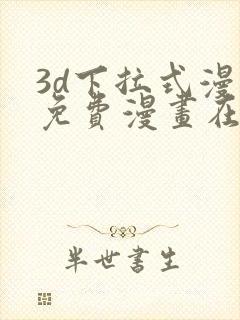 3d下拉式漫
免費漫畫在
半世書生